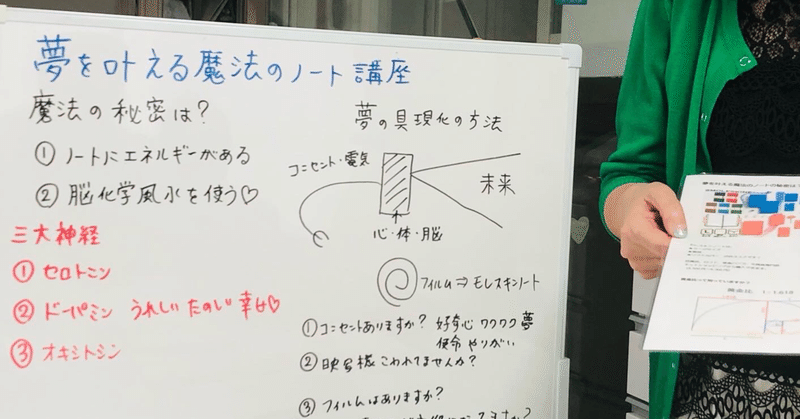 夢を叶える魔法のノート講座
魔法の秘密は?
① ノートにエネルギーがある
② 脳化学風水を使う♡
三大神経
① セロトニン
② ドーパミン うれしい たのしい 幸せ♡
③ オキシトシン
夢の具現化の方法
コンセント・電気
未来
心・体・脳
フィルム ⇒ モレスキンノート
① コンセントありますか? 好奇心 ワクワク 夢
使命 やりがい
② 映写機こわれてませんか?
③ フィルムはありますか?
夢を叶える魔法のノートの秘密は